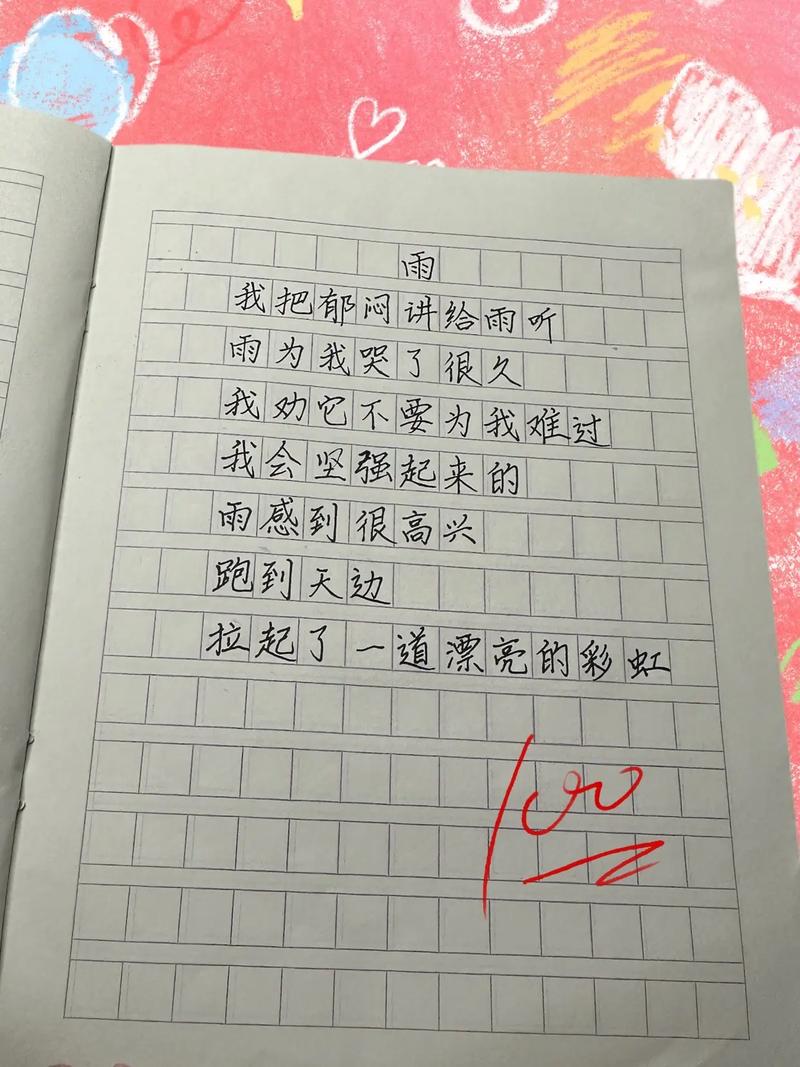 雨
我把郁闷讲给雨听
雨为我哭了很久
我劝它不要为我难过
我会坚强起来的
雨感到很高兴
跑到天边
拉起了一道漂亮的彩虹
100